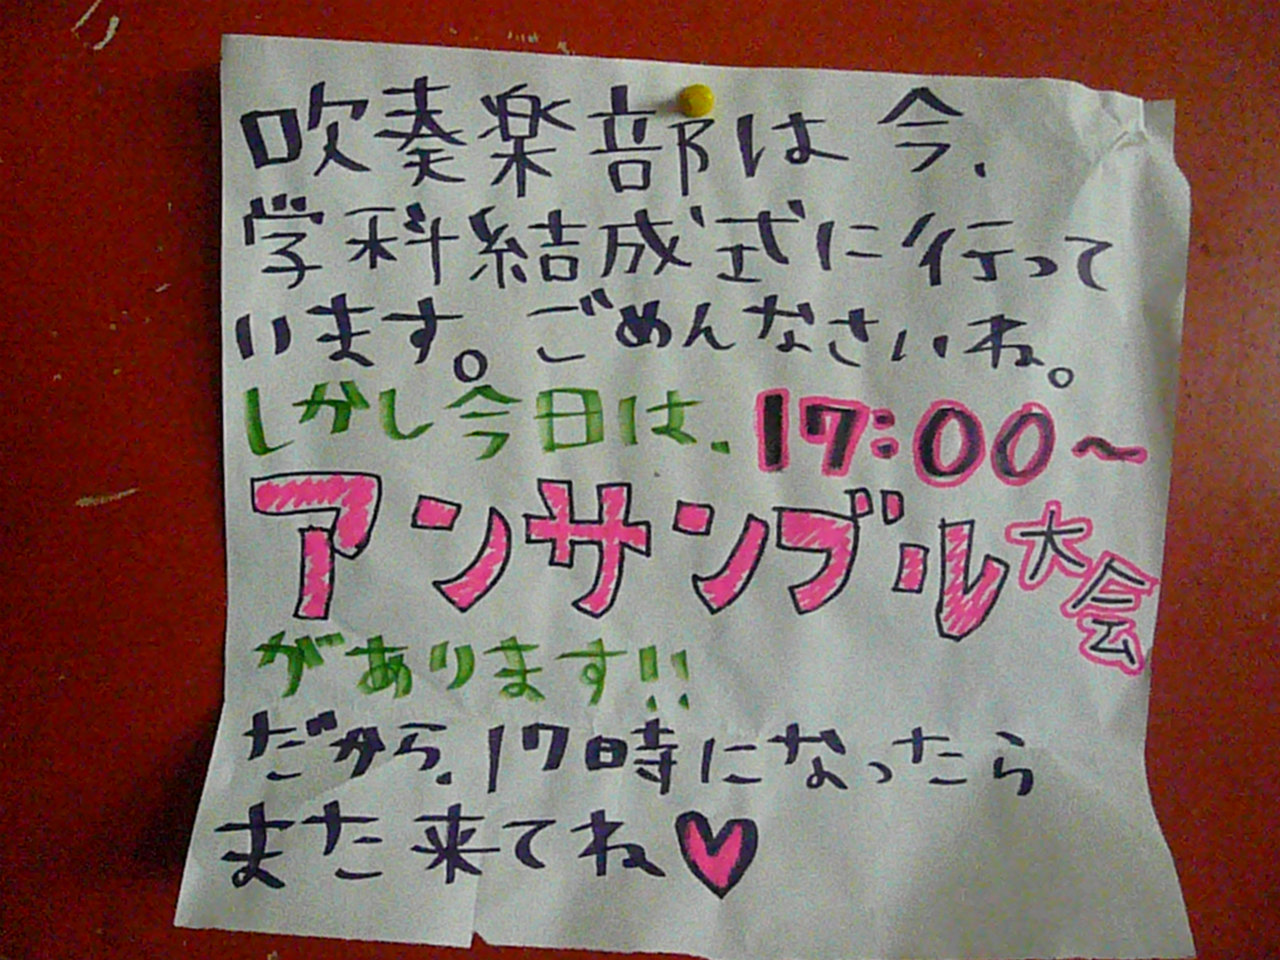 吹奏楽部は今、
学科結成式に行って
います。ごめんなさいね。
しかし今日は、17:00〜
アンサンブル大会
があります!!
だから、17時になったら
また来てね♥